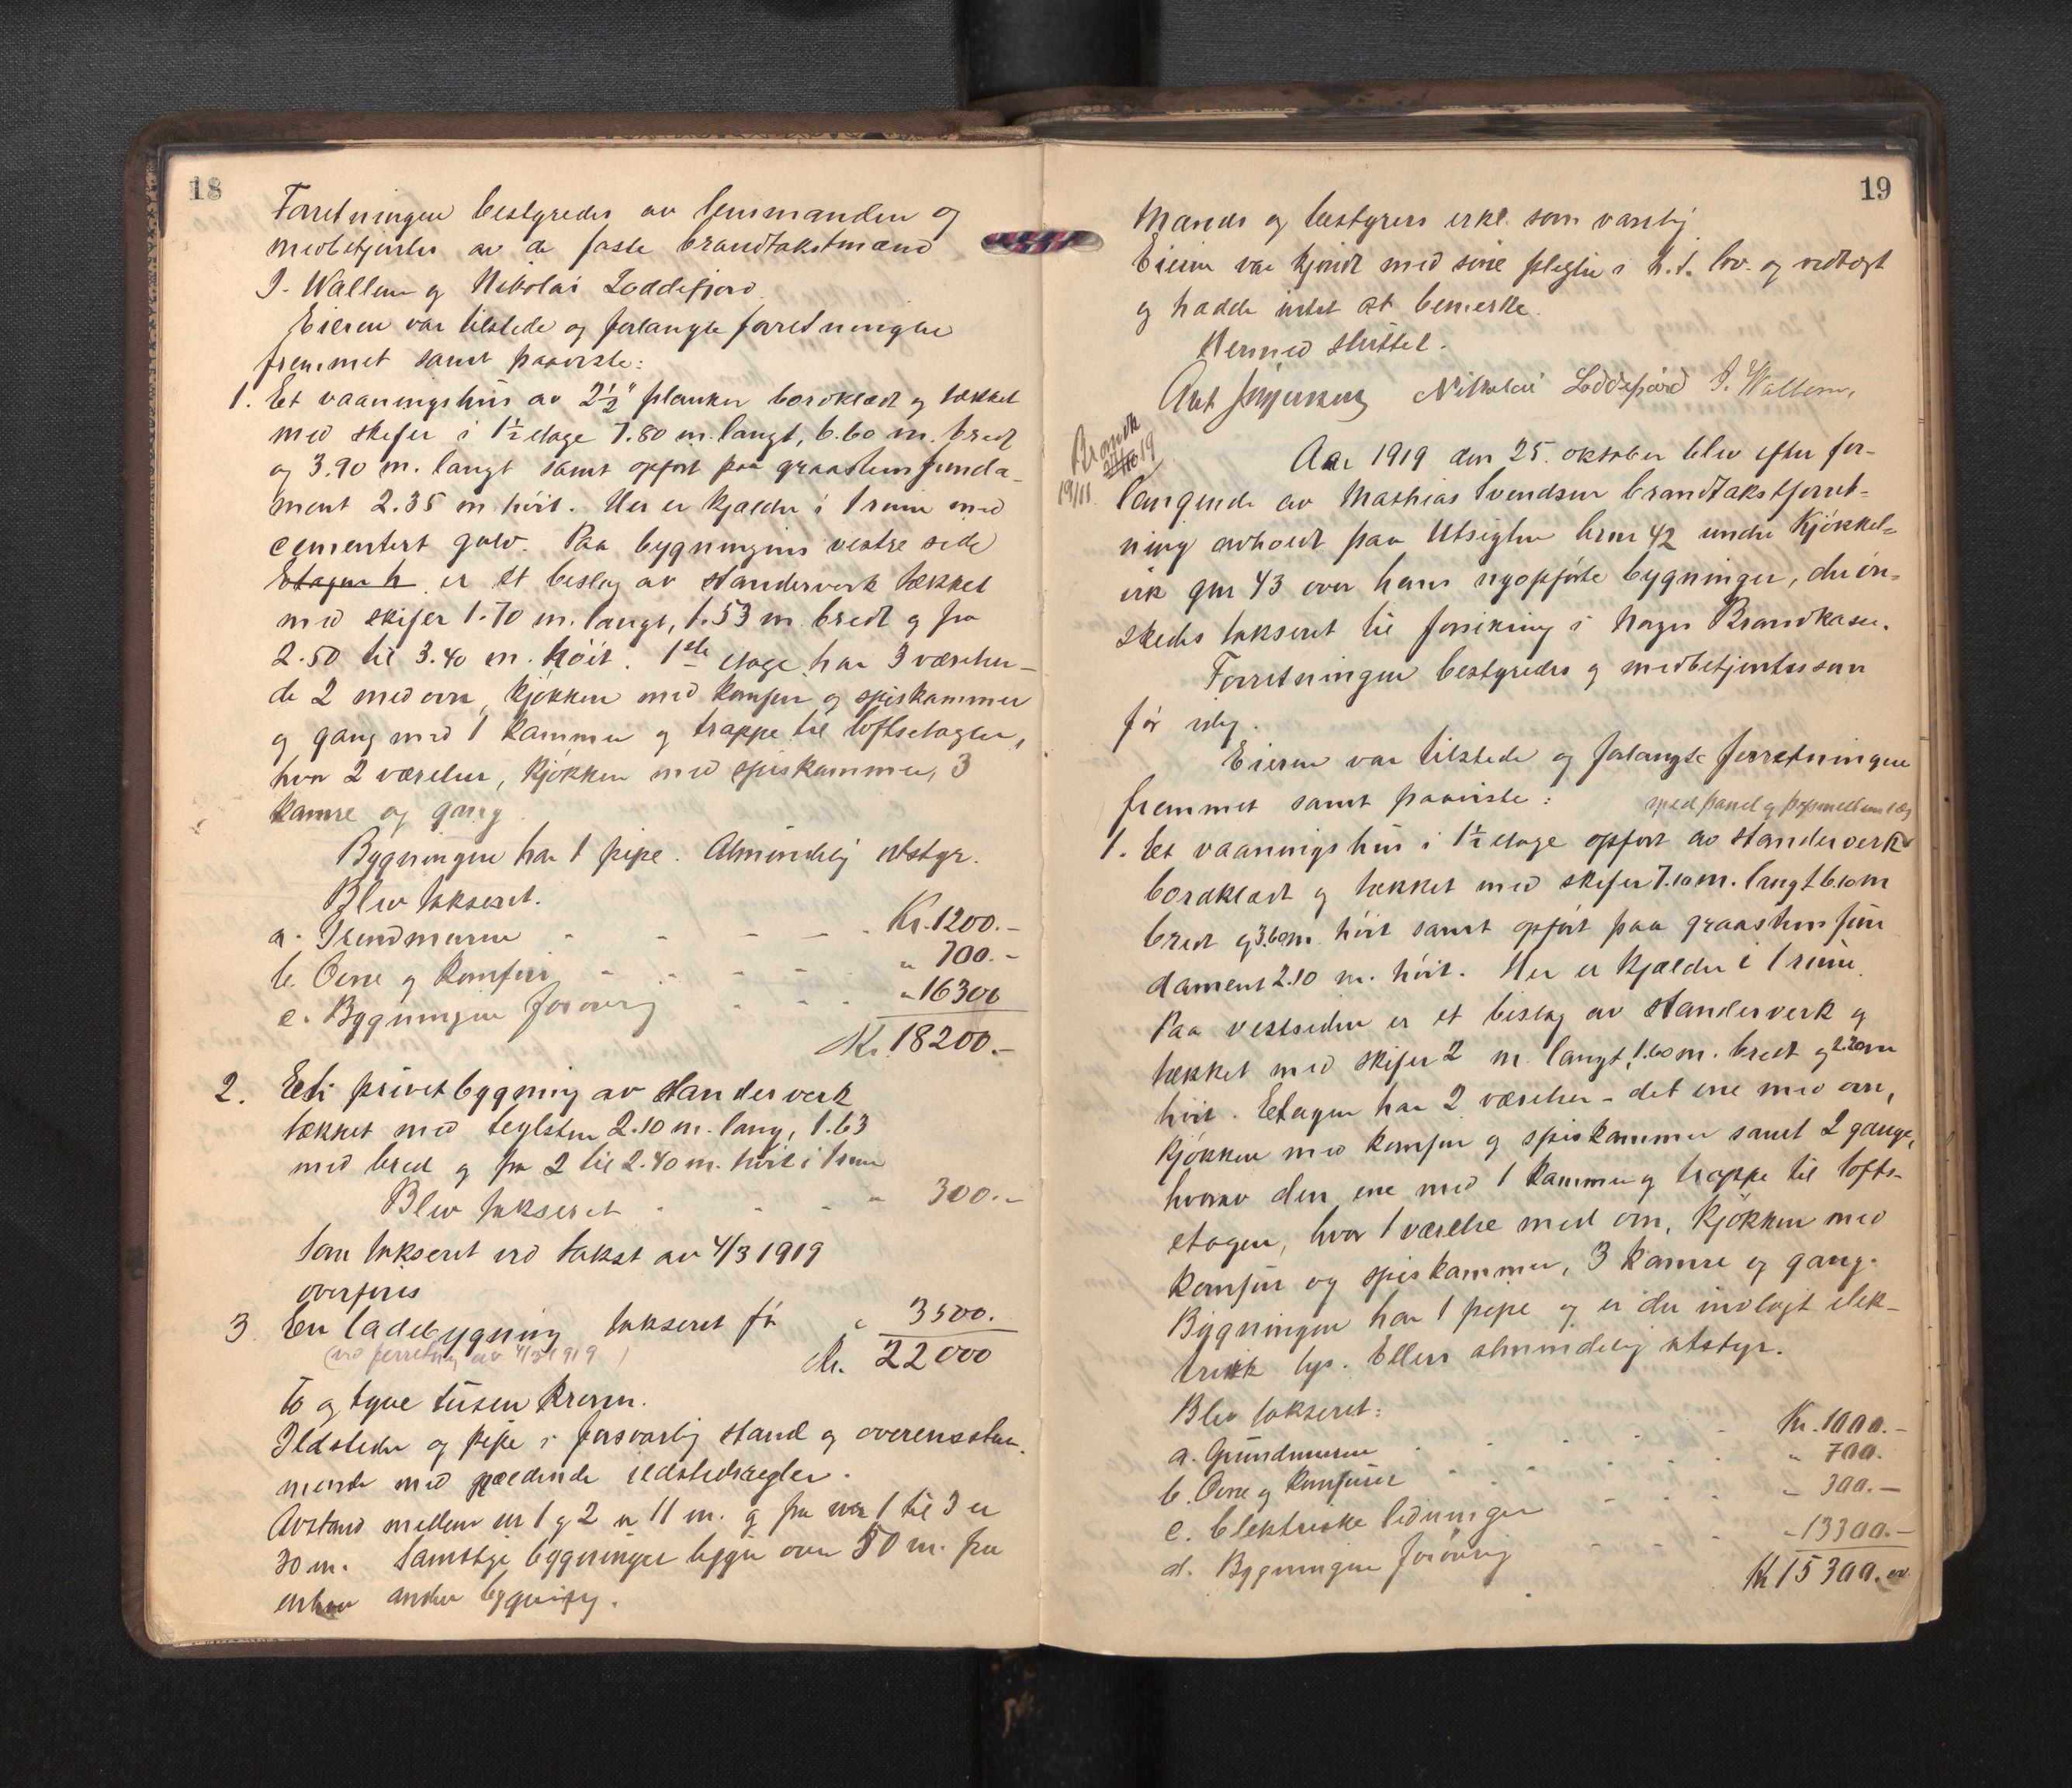 18
Forretningen bestyredes av lensmanden og
medbetjentes av de faste brandtakstmænd
J. Wallem og Nikolai Loddefjord.
Eieren var tilstede og forlangte forretningen
fremmet samt paaviste:
1. Et vaaningshus av 2½" planker bordklædt og tækket
med skifer i 1½ etage 7.80 m. langt, 6.60 m. bredt
og 3.90 m. langt samt opført paa graastensfunda-
ment 2.35 m høit. Her er kjælder i 1 rum med
cementert gulv. Paa bygningens vestre side
Etagen h er et beslag av standerverk tækket
med skifer 1.70 m. langt, 1.53 m bredt og fra
2.50 til 3.40 m. høit. 1ste etage har 3 værelser -
de 2 med ovn, kjøkken med komfur og spiskammer
og gang med 1 kammer og trappe til loftsetagen,
hvor 2 værelser, kjøkken med spiskammer, 3
kamre og gang.
Bygningen har 1 pipe. Almindelig utstyr.
Blev takseret.
a. Grundmuren - - - - - Kr. 1200.-
b. Ovne og komfur - - - - - " 700.-
c. Bygningen forøvrig - - - - " 16300
Kr. 18200.-
2. Et privetbygning av standerverk
tækket med teglsten 2.10 m. lang, 1.63
med bred og fra 2 til 2.40 m. høit i 1 rum
Blev takseret - - - " 300.-
Som takseret ved takst av 4/3 1919
overføres
3. En ladebygning takseret for " 3500.
(ved forretning av 4/3 1919)
Kr. 22000
To og tyve tusen kroner.
Ildsteder og pipe i forsvarlig stand og overensstem-
mende med gjældende ildstedsregler.
Avstand mellem nr 1 og 2 er 11 m. og fra nr 1 til 3 er
30 m. Samtlige bygninger ligger over 50 m. fra
enhver anden bygning.
19
Mænds og bestyrers erkl. som vanlig
Eieren var kjendt med sine pligter i h. t. lov og vedtegt
og hadde intet at bemerke.
Hermed sluttet.
Nikolai Loddefjord J. Wallem,
Brandk
19/11
Aar 1919 den 25. oktober blev efter for-
langende av Mathias Svendsen brandtakstforret-
ning avholdt paa Utsigten brnr 42 under Kjøkkel-
vik gnr 43 over hans nyopførte bygninger, der øn-
skedes takseret til forsikring i Norges Brandkasse.
Forretningen bestyredes og medbetjentes som
før idag.
Eieren var tilstede og forlangte forretningen
fremmet samt paaviste:
med panel og papmellemlæg
1. Et vaaningshus i 1½ etage opført av standerverk
bordklædt og tækket med skifer 7.10 m. langt 6.10 m
bredt og 3.60 m. høit samt opført paa graastensfun
dament 2.10 m. høit. Her er kjælder i 1 rum.
Paa vestsiden er et beslag av standerverk og
tækket med skifer 2 m. langt, 1.60 m. bredt og 2.20 m
høit. Etagen har 2 værelser - det ene med ovn,
kjøkken med komfur og spiskammer samt 2 gange,
hvorav den ene med 1 kammer og trappe til lofts-
etagen, hvor 1 værelse med ovn, kjøkken med
komfur og spiskammer, 3 kamre og gang.
Bygningen har 1 pipe og er der indlagt elek-
trisk lys. Ellers almindelig utstyr.
Blev takseret:
a. Grundmuren - - - - - Kr. 1000.-
b. Ovne og komfurer - - - - " 700.
c. Elektriske ledninger - - - " 300.-
d. Bygningen forøvrig - - - " 13300.-
Kr 15300.